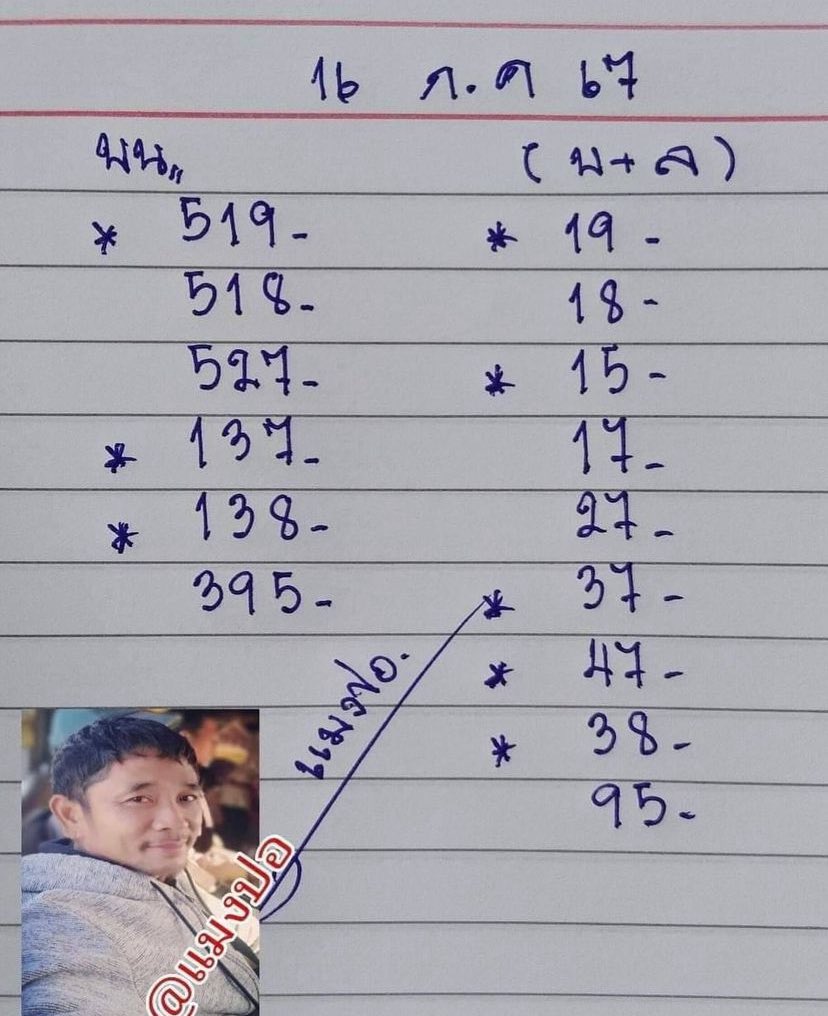 16 ก.ค 67
บน,, (บ+ล)
* 519- * 19-
518- 18-
527- * 15-
* 137- 17-
* 138- 27-
395- * 37-
* 47-
* 38-
95-
แมงปอ.
@แมงปอ